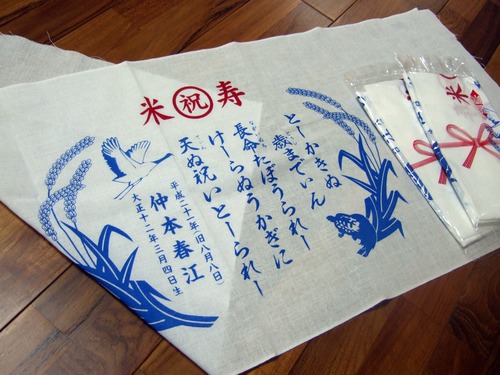 米祝寿
とーかきぬ
歳までぃん
長命たぼうられー
けーらぬうかぎに
天ぬ祝いとーられー
平成二十一年(旧八月八日)
仲本春江
大正十二年二月四日生
米